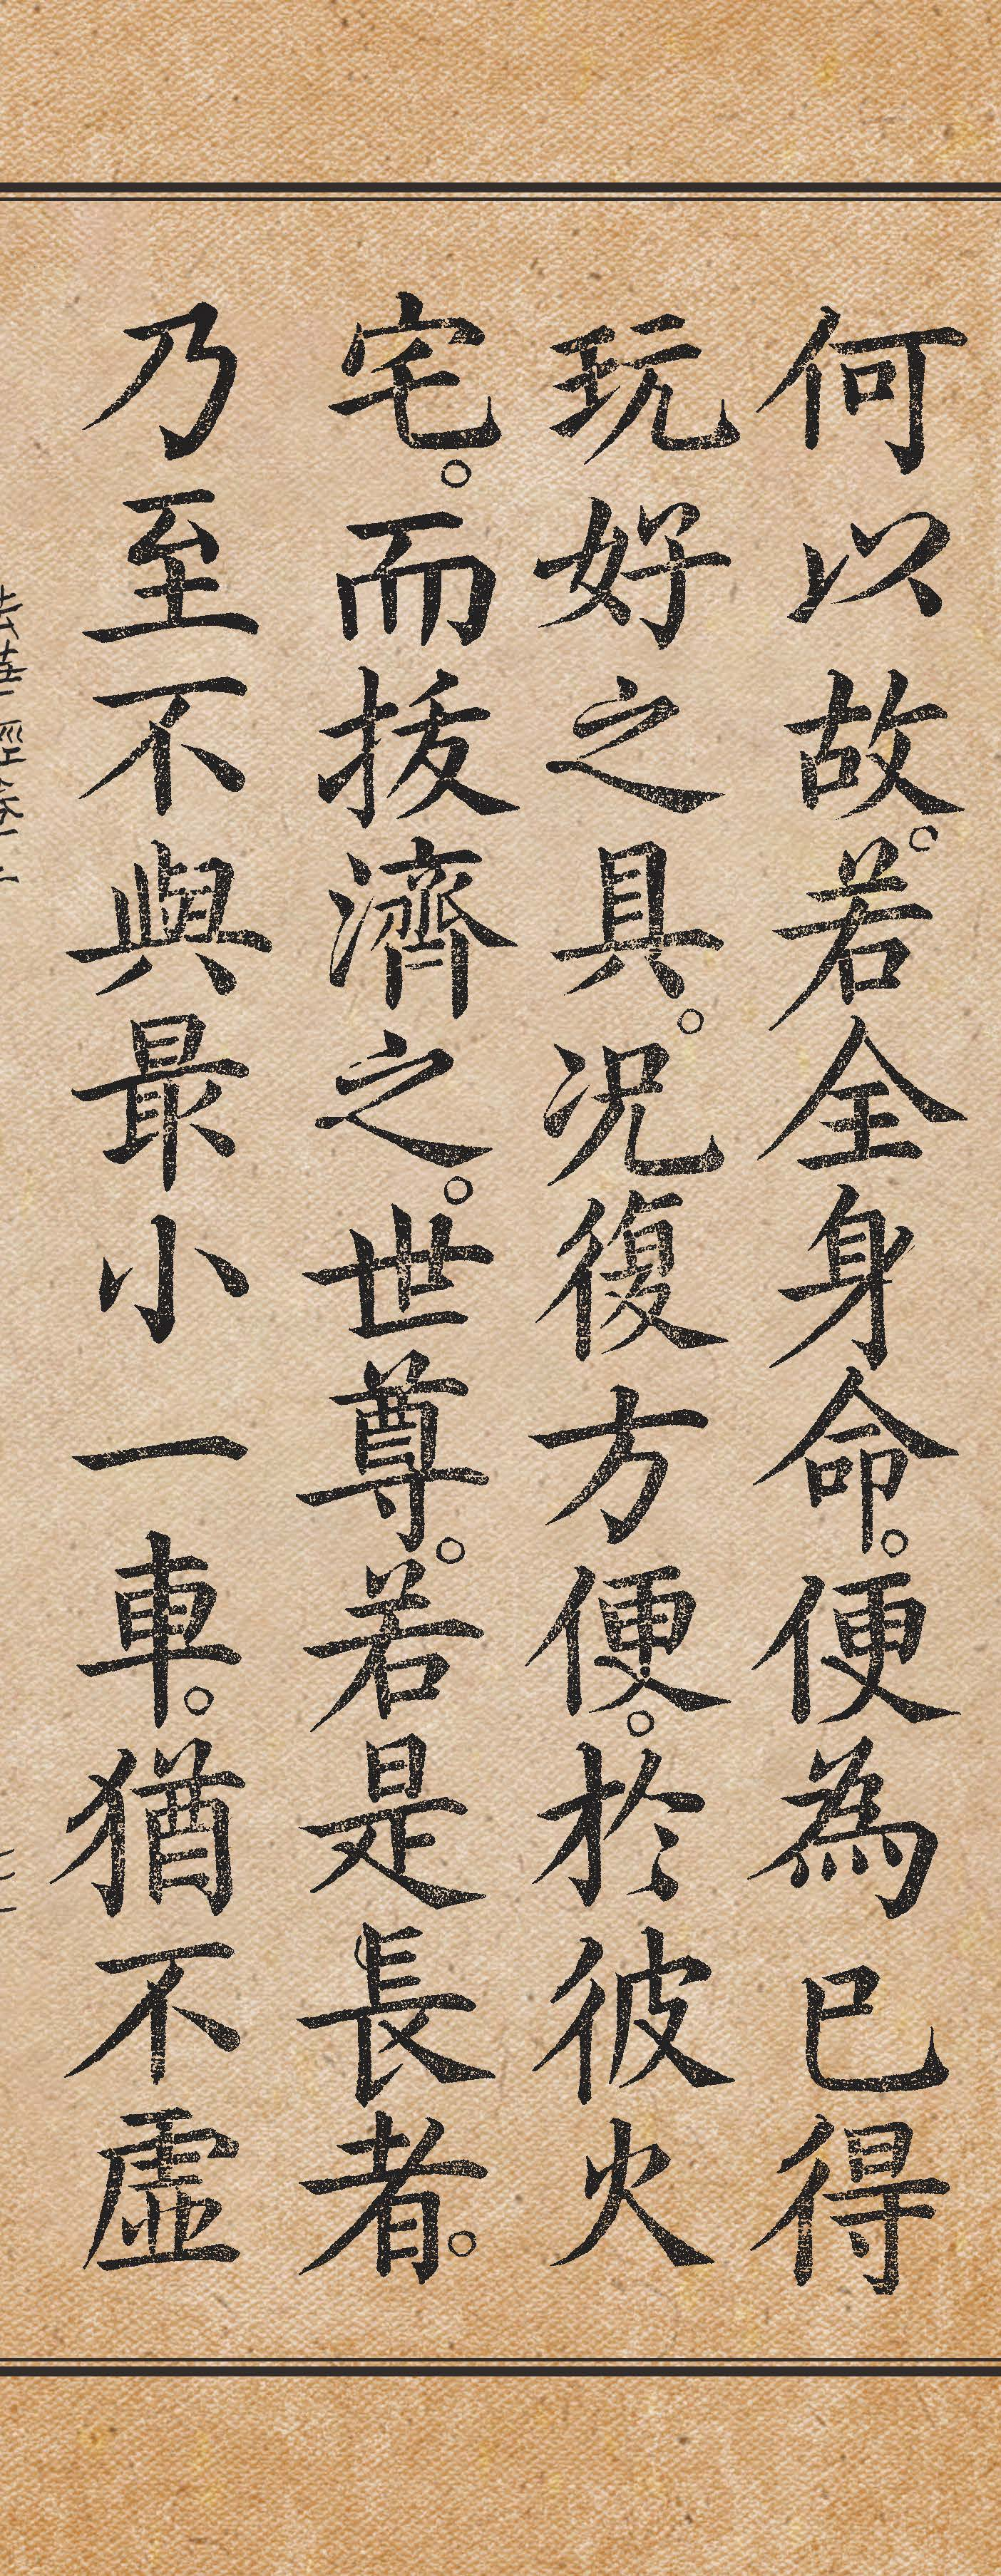 何以故。若全身命。便為已得
玩好之具。况復方便。於彼火
宅。而拔濟之。世尊。若是長者。
乃至不與最小一車。猶不虛